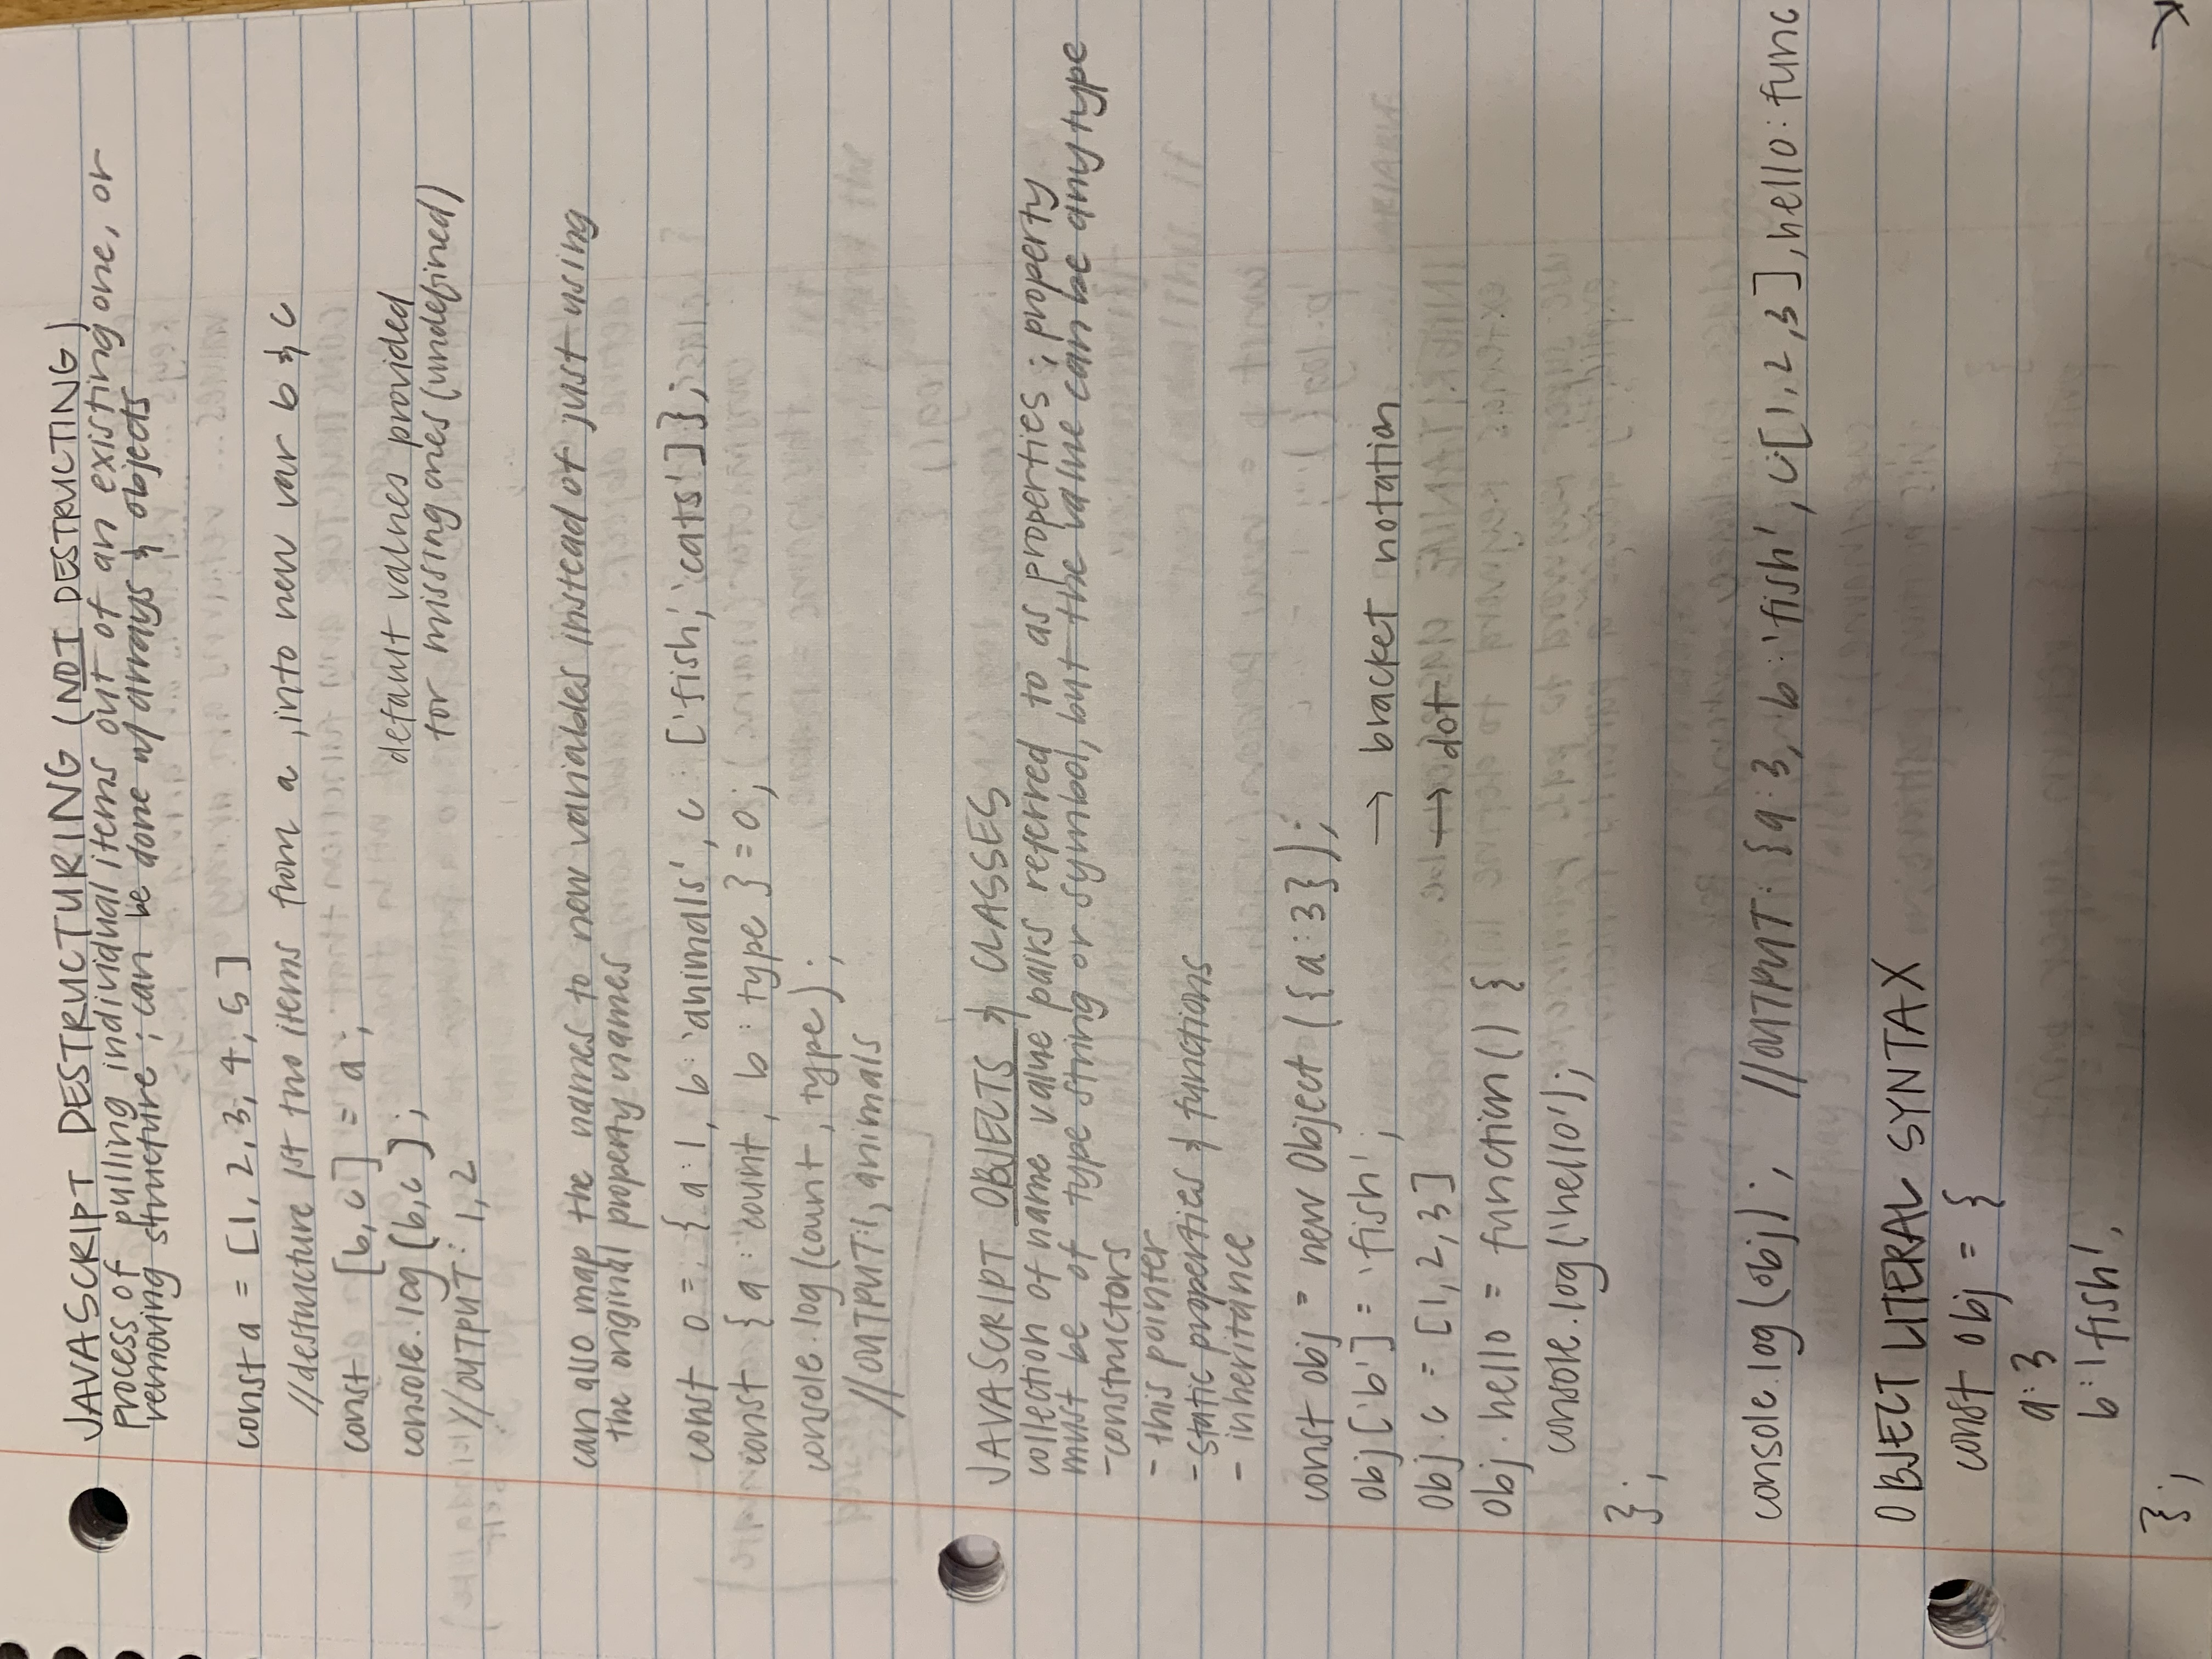 JAVASCRIPT DESTRUCTURING (NOT DESTRUCTING)
process of pulling individual items out of an existing one, or
removing structure ; can be done w/ arrays & objects
const a = [1, 2, 3, 4, 5]
//destructure 1st two items from a, into new var b & c
const [b, c] = a;
console.log(b,c);
//OUTPUT: 1, 2
default values provided
for missing ones (undefined)
can also map the names to new variables instead of just using
the original property names
const o = { a: 1, b: 'animals', c: ['fish', 'cats'] };
const { a: count, b: type } = o;
console.log(count, type);
//OUTPUT: 1, animals
JAVASCRIPT OBJECTS & CLASSES
collection of name value pairs referred to as properties ; property
must be of type string or symbol, but the value can be any type
- constructors
- this pointer
- static properties & functions
- inheritance
const obj = new Object ({a:3});
obj['b'] = 'fish'; → bracket notation
obj.c = [1, 2, 3] → dot
obj.hello = function() {
console.log('hello');
};
console.log(obj); //OUTPUT: {a:3, b:'fish', c:[1,2,3], hello: func
OBJECT LITERAL SYNTAX
const obj = {
a: 3
b: 'fish',
};